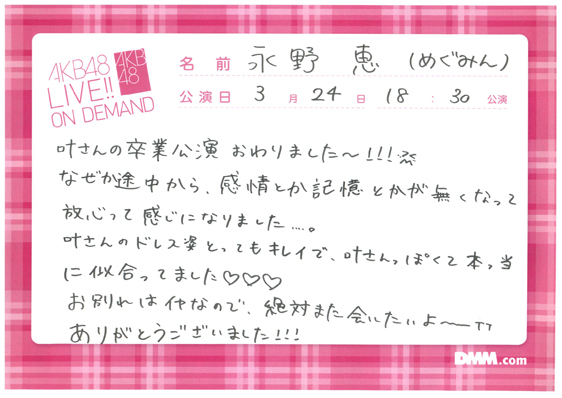 AKB48
LIVE!!
ON DEMAND
AKB
48
名前 永野 恵 (めぐみん)
公演日 3月24日 18:30公演
叶さんの卒業公演 おわりました〜!!!
なぜか途中から、感情とか記憶とかが無くなって
放心って感じになりました....。
叶さんのドレス姿とってもキレイで、叶さんっぽくて本っ当
に似合ってました♡♡♡
お別れはイヤなので、絶対また会いたいよ〜TT
ありがとうございました!!!
DMM.com